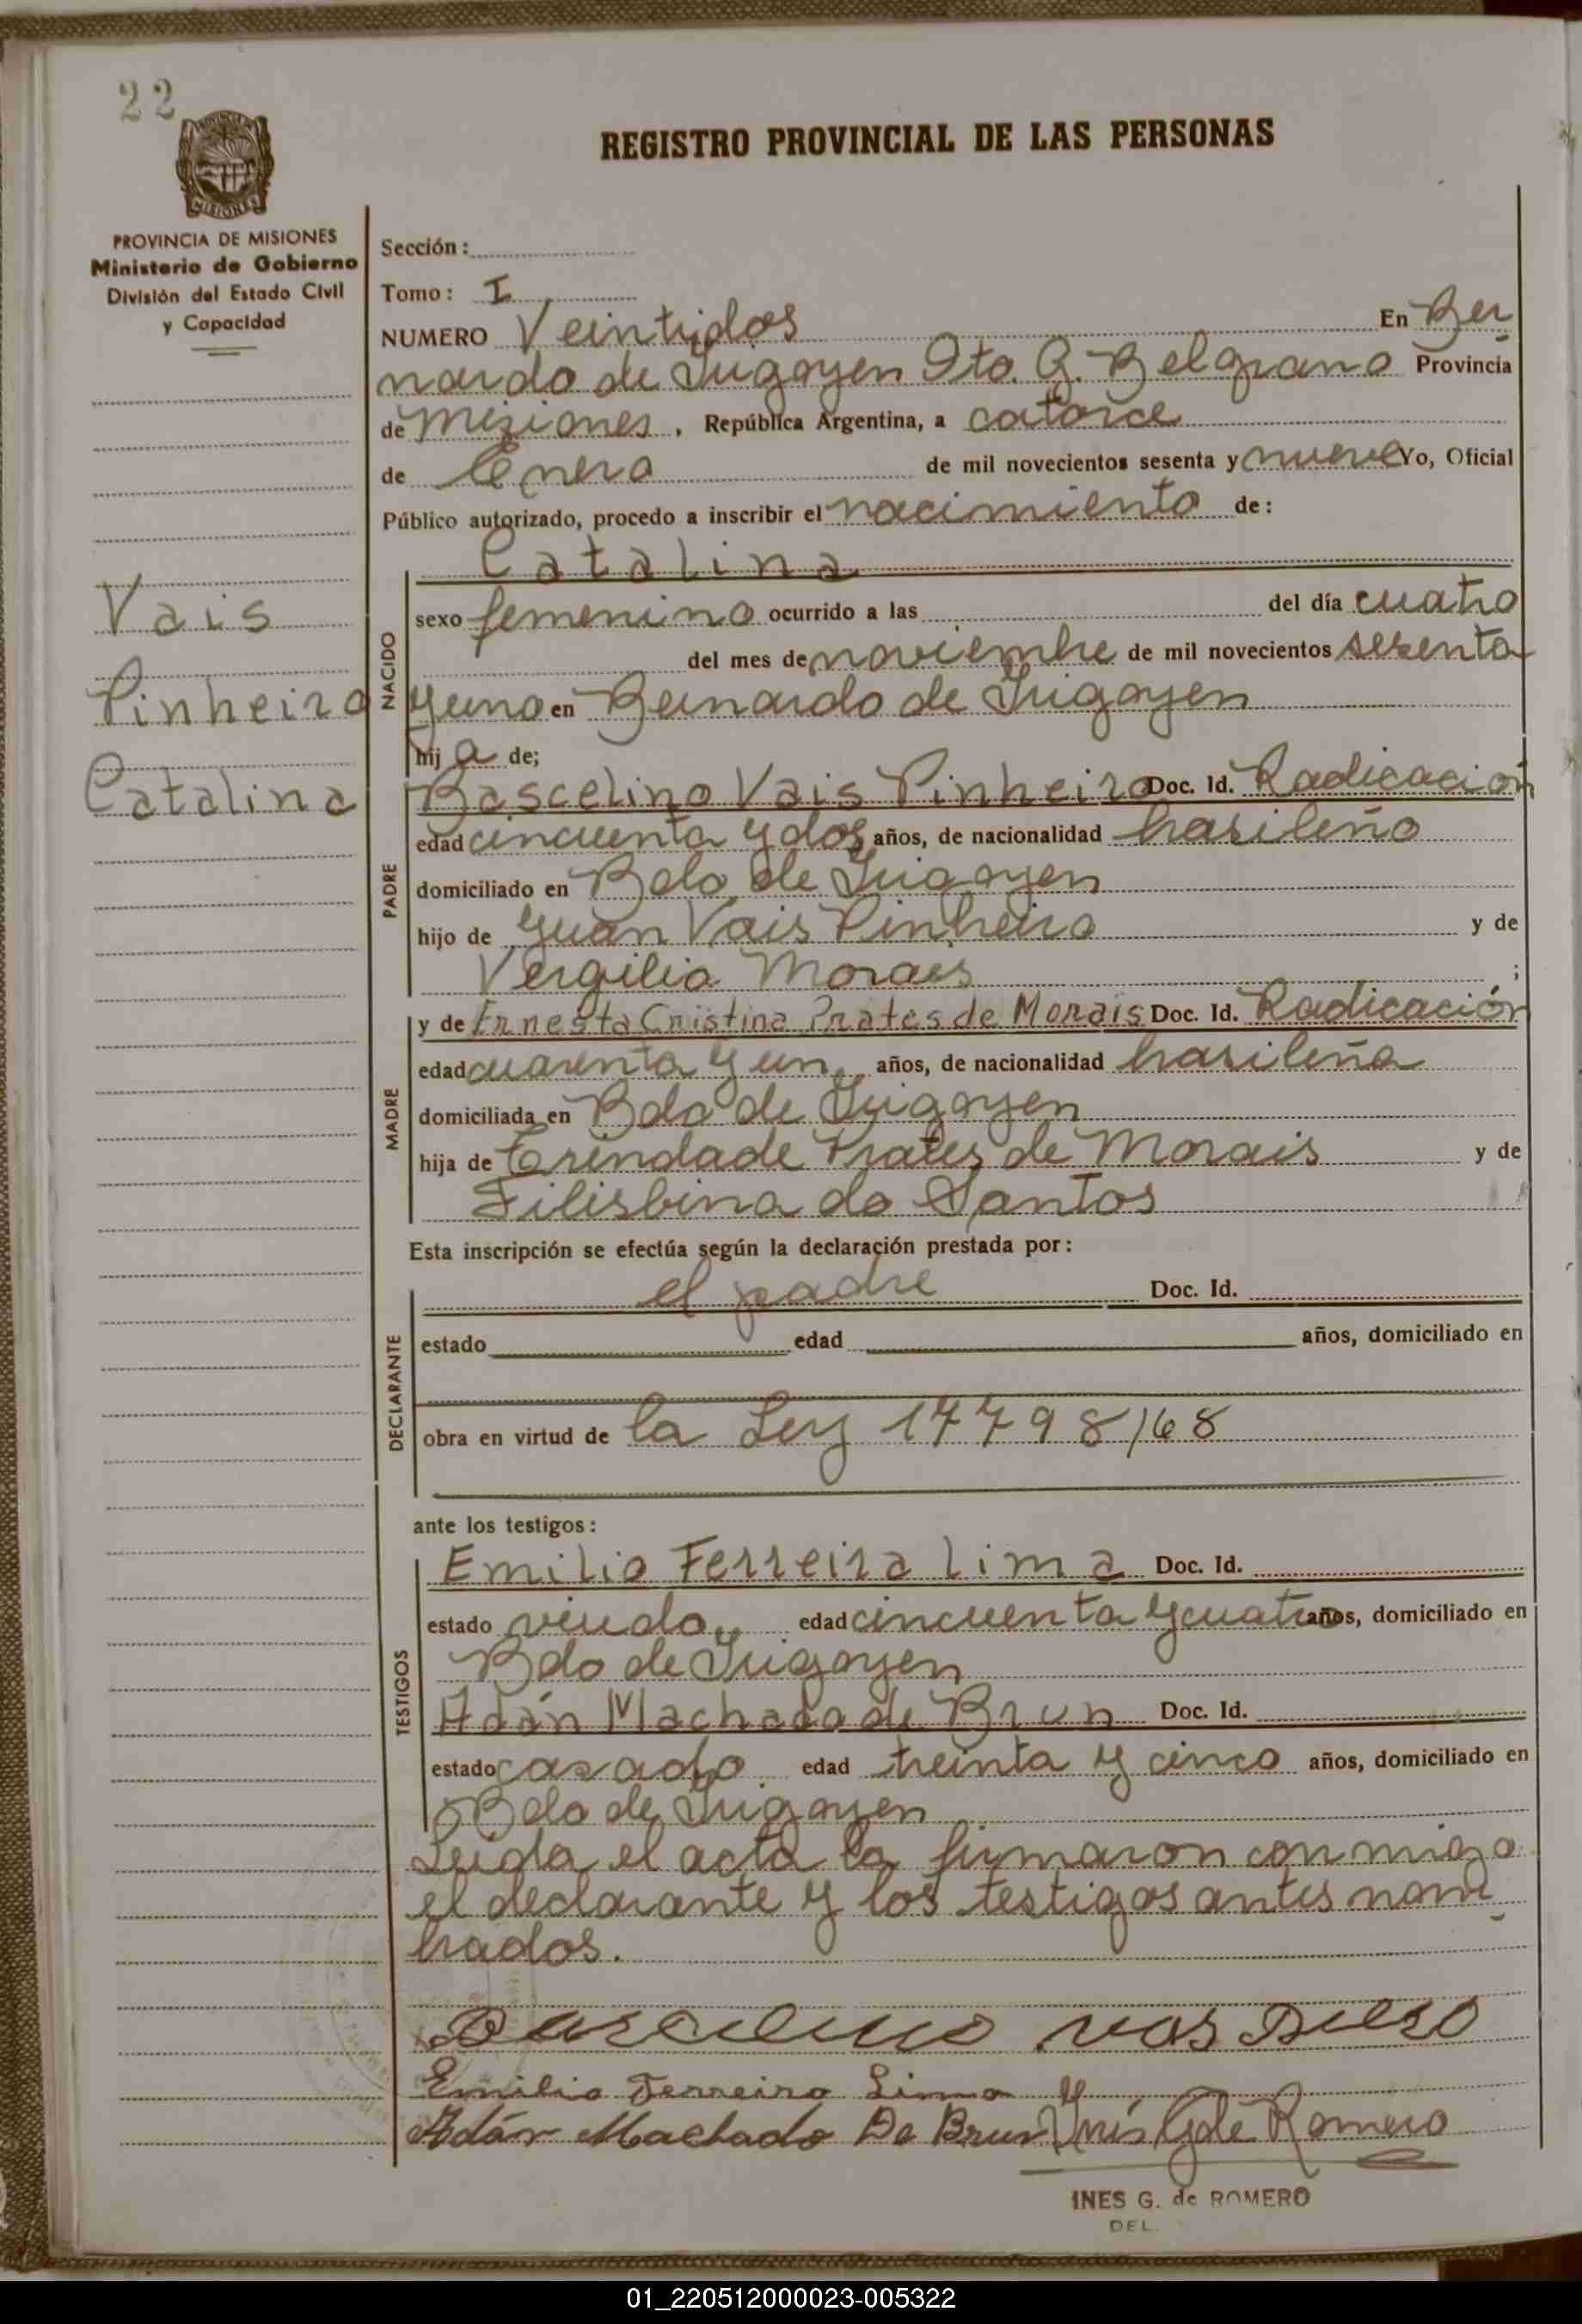 22
PROVINCIA DE MISIONES
Ministerio de Gobierno
División del Estado Civil
y Capacidad
Vais
Pinheiro
Catalina
REGISTRO PROVINCIAL DE LAS PERSONAS
Sección:
Tomo: I
NUMERO Veintidos En Ber
nardo de Irigoyen Dto. G. Belgrano Provincia
de Misiones, República Argentina, a catorce
de Enero de mil novecientos sesenta y nueve Yo, Oficial
Público autorizado, procedo a inscribir el nacimiento de:
Catalina
NACIDO
sexo femenino ocurrido a las del día cuatro
del mes de noviembre de mil novecientos sesenta
y uno en Bernardo de Irigoyen
hija de;
PADRE
Bascelino Vais Pinheiro Doc. Id. Radicación
edad cincuenta y dos años, de nacionalidad brasileño
domiciliado en Bdo de Irigoyen
hijo de Juan Vais Pinheiro y de
Vergilia Moraes ;
MADRE
y de Ernesta Cristina Prates de Morais Doc. Id. Radicación
edad cuarenta y un años, de nacionalidad brasileña
domiciliada en Bdo de Irigoyen
hija de Trindade Prates de Morais y de
Filisbina do Santos
Esta inscripción se efectúa según la declaración prestada por:
DECLARANTE
el padre Doc. Id.
estado edad años, domiciliado en
obra en virtud de la Ley 17798/68
ante los testigos:
TESTIGOS
Emilio Ferreira Lima Doc. Id.
estado viudo edad cincuenta y cuatro años, domiciliado en
Bdo de Irigoyen
Adán Machado de Brun Doc. Id.
estado casado edad treinta y cinco años, domiciliado en
Bdo de Irigoyen
Leida el acta la firmaron conmigo
el declarante y los testigos antes nom
brados.
Emilio Ferreira Lima
Adán Machado De Brun Inés G de Romero
INES G. de ROMERO
DEL.
01_220512000023-005322